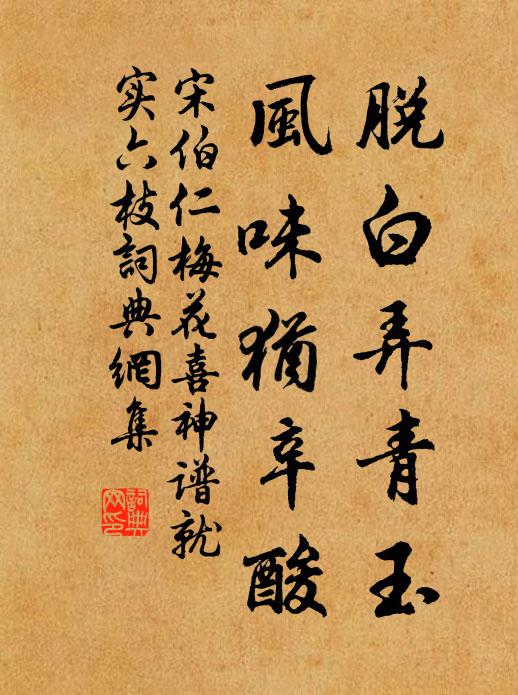 脱白弄青玉
風味猶辛酸
宋伯仁梅花喜神谱就
实六枝詞典網集
詞典
网印